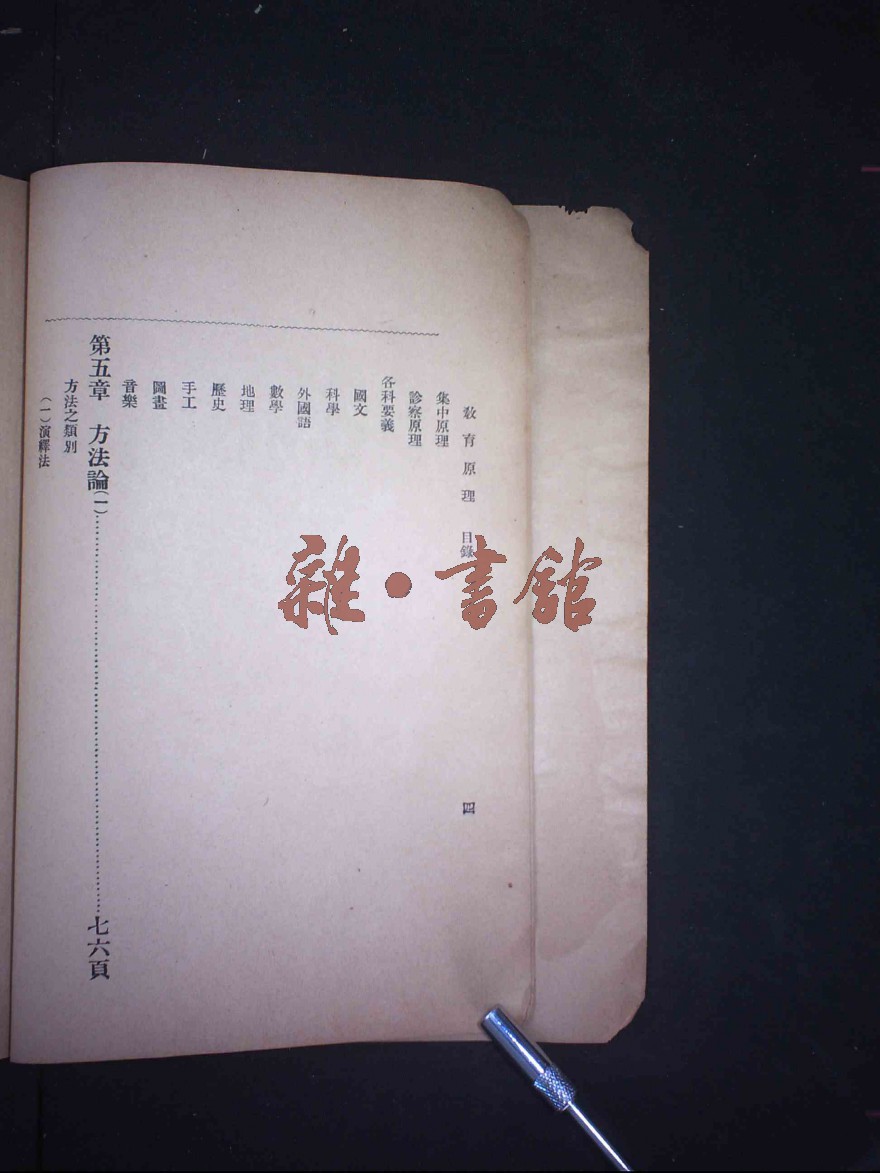 教育原理 目錄 四
集中原理
診察原理
各科要義
國文
科學
外國語
數學
地理
歷史
手工
圖畫
音樂
第五章 方法論(一)……七六頁
方法之類別
(一)演繹法
雜·書館